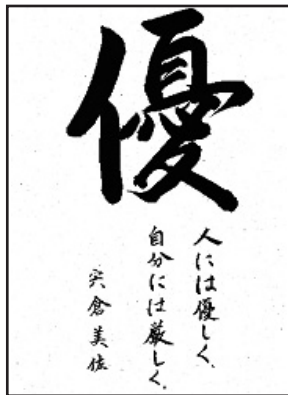 優
人には優しく、
自分には厳しく。
宍倉美佐